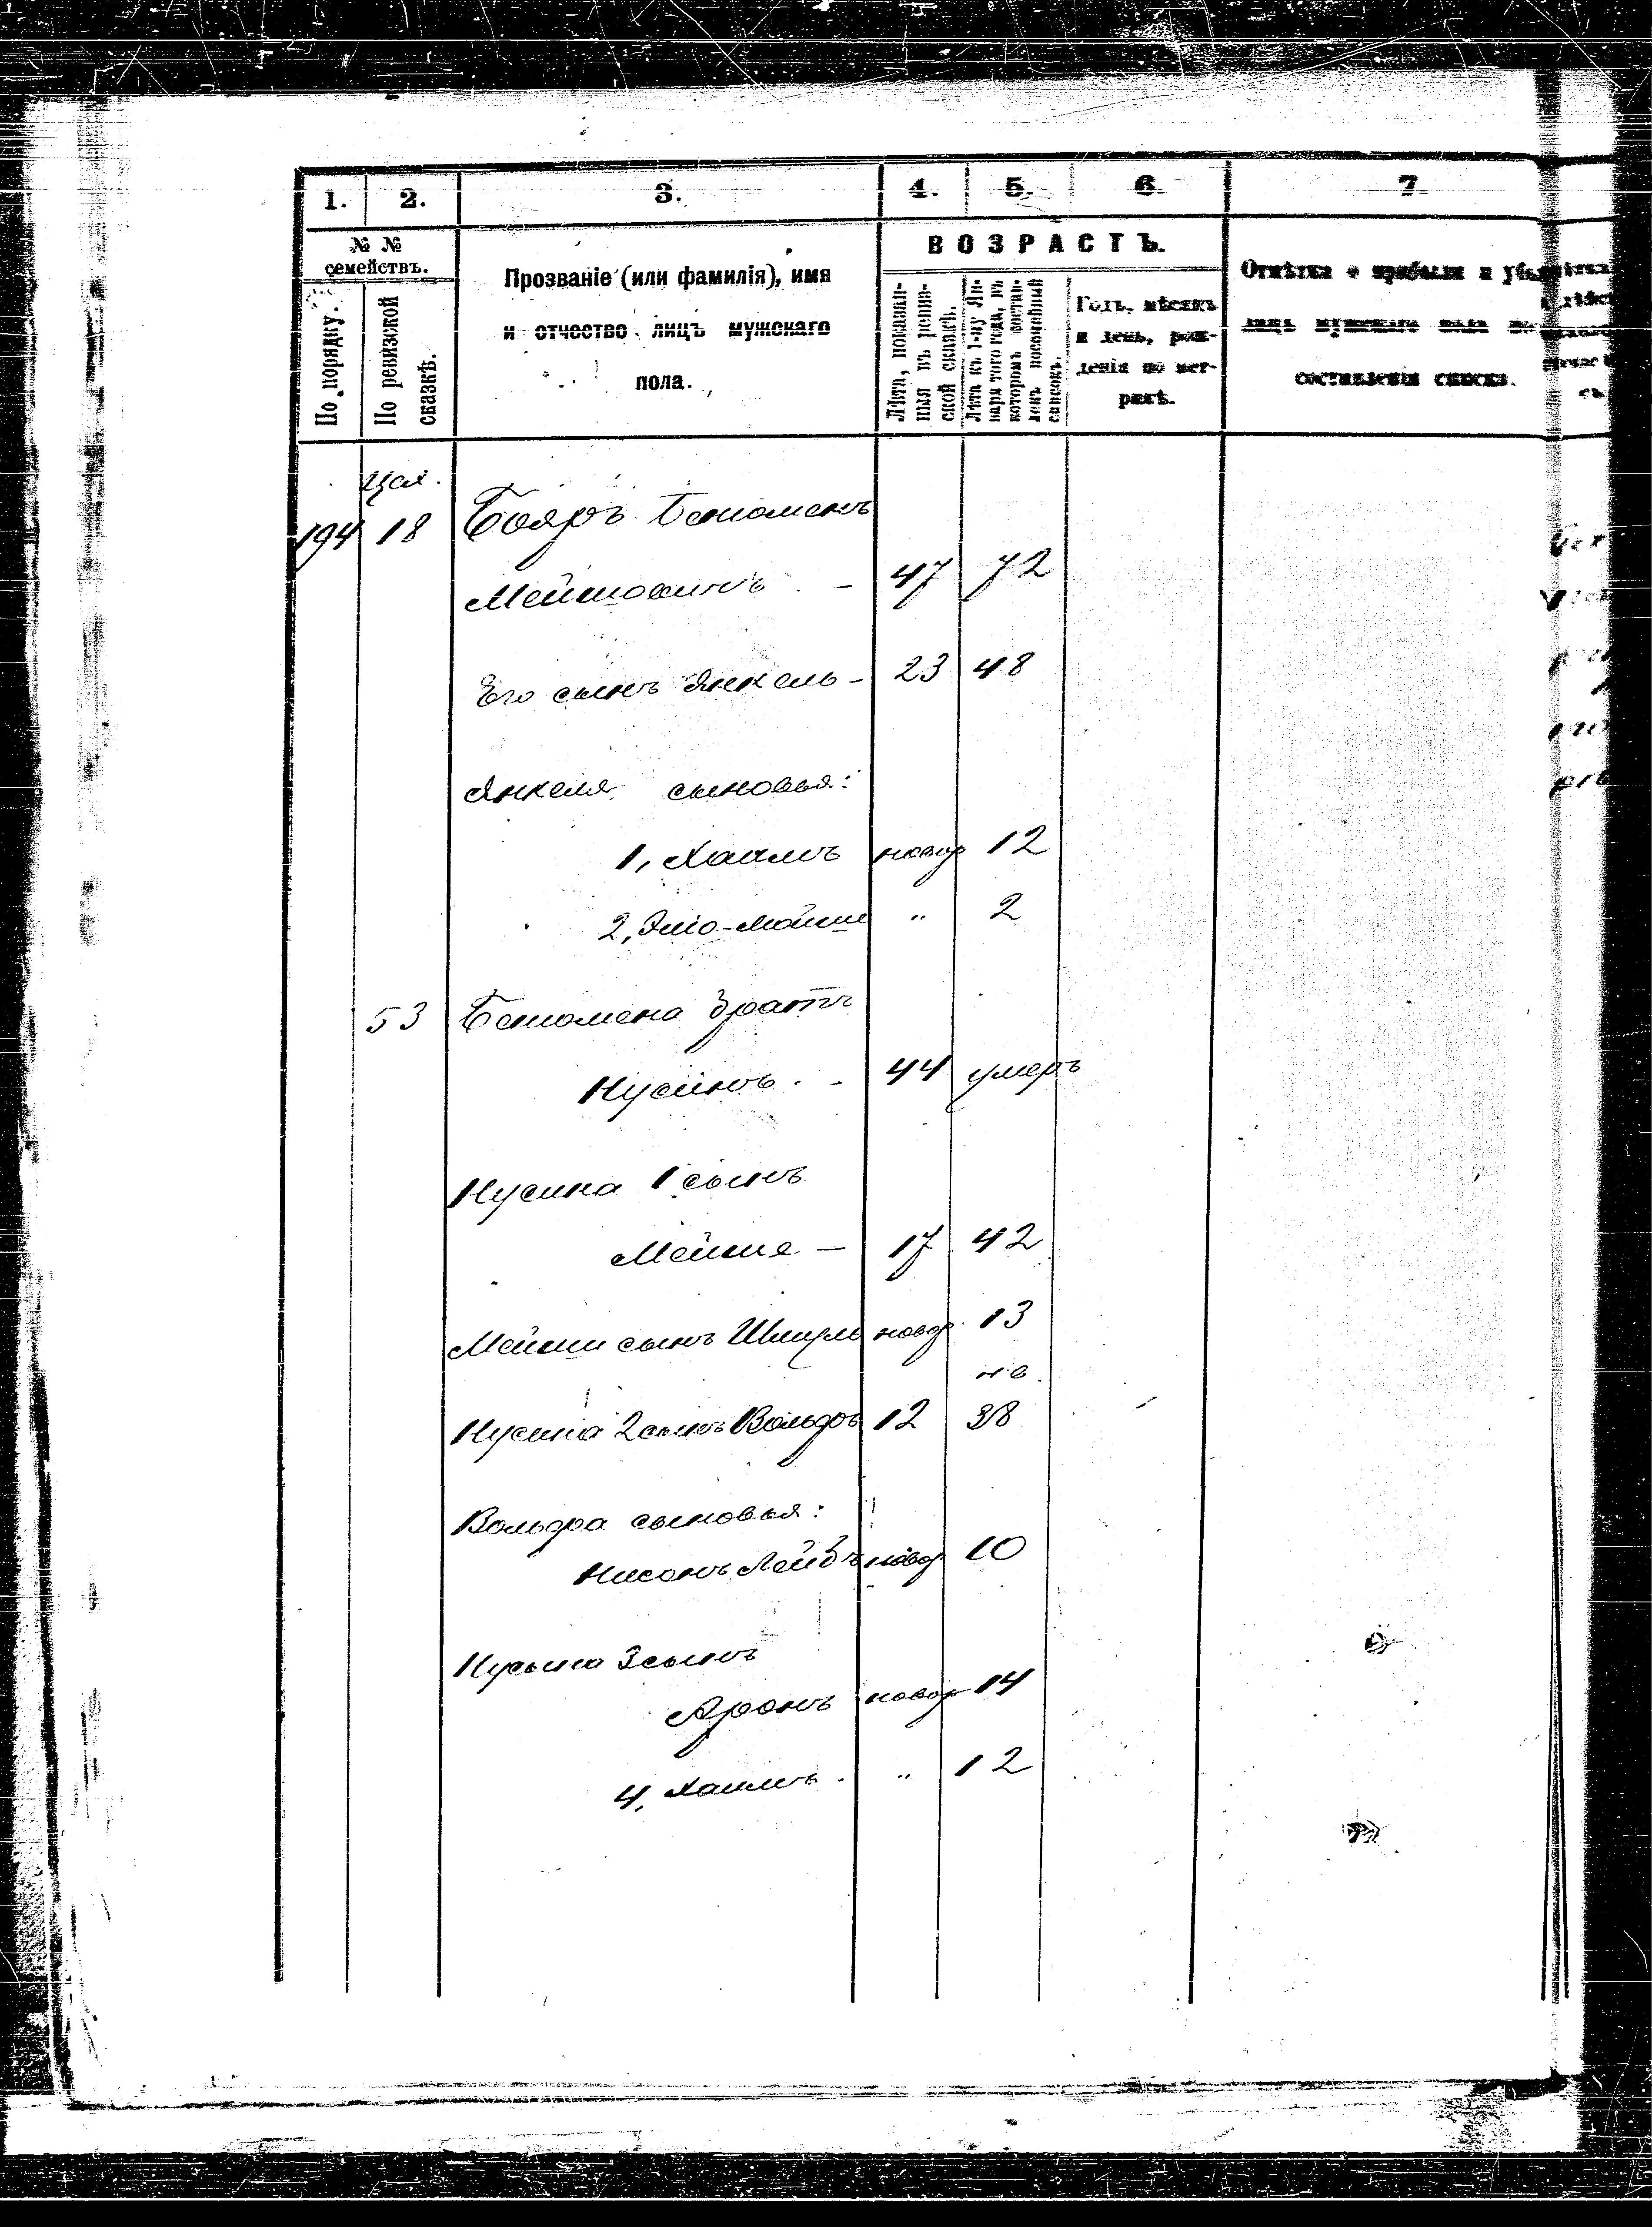 1. 2. 3. 4. 5. 6. 7.
№ №
семействъ.
По порядку.
По ревизской
сказкѣ.
Прозваніе (или фамилія), имя
и отчество лицъ мужскаго
пола.
ВОЗРАСТЪ.
Лѣта, показан-
ныя въ ревиз-
ской сказкѣ.
Лѣта къ 1-му Ян-
варя того года, въ
которомъ состав-
ленъ посемейный
списокъ.
Годъ, мѣсяцъ
и день, рож-
денія по мет-
рикѣ.
Отмѣтка о прибыли и
лицъ мужскаго пола
составленія списка.
194 18 Бояръ Беніоменъ
Мейшовичъ - 47 72
Его сынъ Янкель - 23 48
Янкеля сыновья:
1, Хаимъ новор 12
2, Элiо-Мойше " 2
53 Беніомена братъ
Нусинъ - 44 умеръ
Нусина 1 сынъ
Мейше - 17 42
Мейши сынъ Шмуль новор. 13
Нусина 2 сынъ Вольфъ 12 38
Вольфа сыновья:
Нисонъ Лейбъ новор 10
Нусина 3 сынъ
Аронъ новор 14
4, Хаимъ. " 12